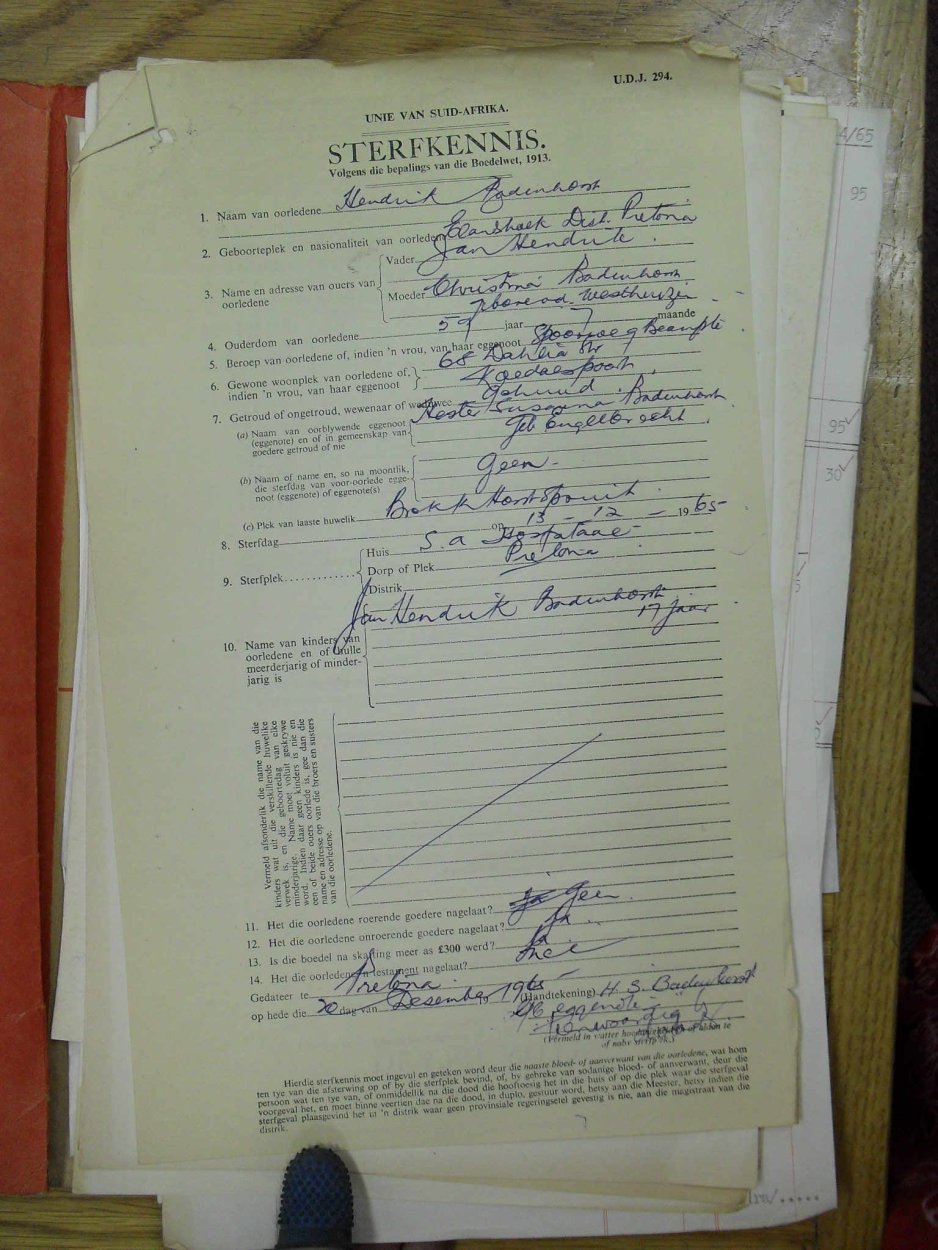 U.D.J. 294.
4/65
UNIE VAN SUID-AFRIKA.
STERFKENNIS.
Volgens die bepalings van die Boedelwet, 1913.
95
1. Naam van oorledene Hendrik Badenhorst
2. Geboorteplek en nasionaliteit van oorledene Elandshoek Dist. Pretoria
Vader Jan Hendrik
3. Name en adresse van ouers van oorledene
Moeder Christina Badenhorst
gebore v.d. Westhuizen
4. Ouderdom van oorledene 59 jaar 7 maande
5. Beroep van oorledene of, indien 'n vrou, van haar eggenoot Spoorweg Beampte
6. Gewone woonplek van oorledene of, indien 'n vrou, van haar eggenoot 68 Dahlia Str
Koedoespoort
7. Getroud of ongetroud, wewenaar of weduwee Getroud
(a) Naam van oorblywende eggenoot (eggenote) en of in gemeenskap van goedere getroud of nie Hester Susanna Badenhorst
geb Engelbrecht
95
30
(b) Naam of name en, so na moontlik, die sterfdag van voor-oorlede eggenoot (eggenote) of eggenote(s) Geen -
(c) Plek van laaste huwelik Bronkhorstspruit
8. Sterfdag op 13 - 12 - 1965
9. Sterfplek Huis S.a Hospitaal
Dorp of Plek Pretoria
Distrik
Jan Hendrik Badenhorst
17 jaar
10. Name van kinders van oorledene en of hulle meerderjarig of minderjarig is
Vermeld afsonderlik die name van die kinders wat uit die verskillende huwelike verwek is, en die geboortedag van elke minderjarige. Name moet voluit geskrywe word. Indien daar geen kinders is nie en een of beide ouers oorlede is, gee dan die name en adresse op van die broers en susters van die oorledene.
11. Het die oorledene roerende goedere nagelaat? Geen
12. Het die oorledene onroerende goedere nagelaat? Ja
13. Is die boedel na skatting meer as £300 werd? Ja
14. Het die oorledene 'n testament nagelaat? Nee
Gedateer te Pretoria
op hede die 20 dag van Desember 1965 (Handtekening) H. S. Badenhorst
eggenote
Teenwoordig
(Vermeld in watter hoedanigheid
of naby sterfplek.)
Hierdie sterfkennis moet ingevul en geteken word deur die naaste bloed- of aanverwant van die oorledene, wat hom
ten tye van die afsterwing op of by die sterfplek bevind, of, by gebreke van sodanige bloed- of aanverwant, deur die
persoon wat ten tye van, of onmiddelik na die dood die hooftoesig het in die huis of op die plek waar die sterfgeval
voorgeval het, en moet binne veertien dae na die dood, in duplo, gestuur word, hetsy aan die Meester, hetsy indien die
sterfgeval plaasgevind het in 'n distrik waar geen provinsiale regeringsetel gevestig is nie, aan die magistraat van die
distrik.